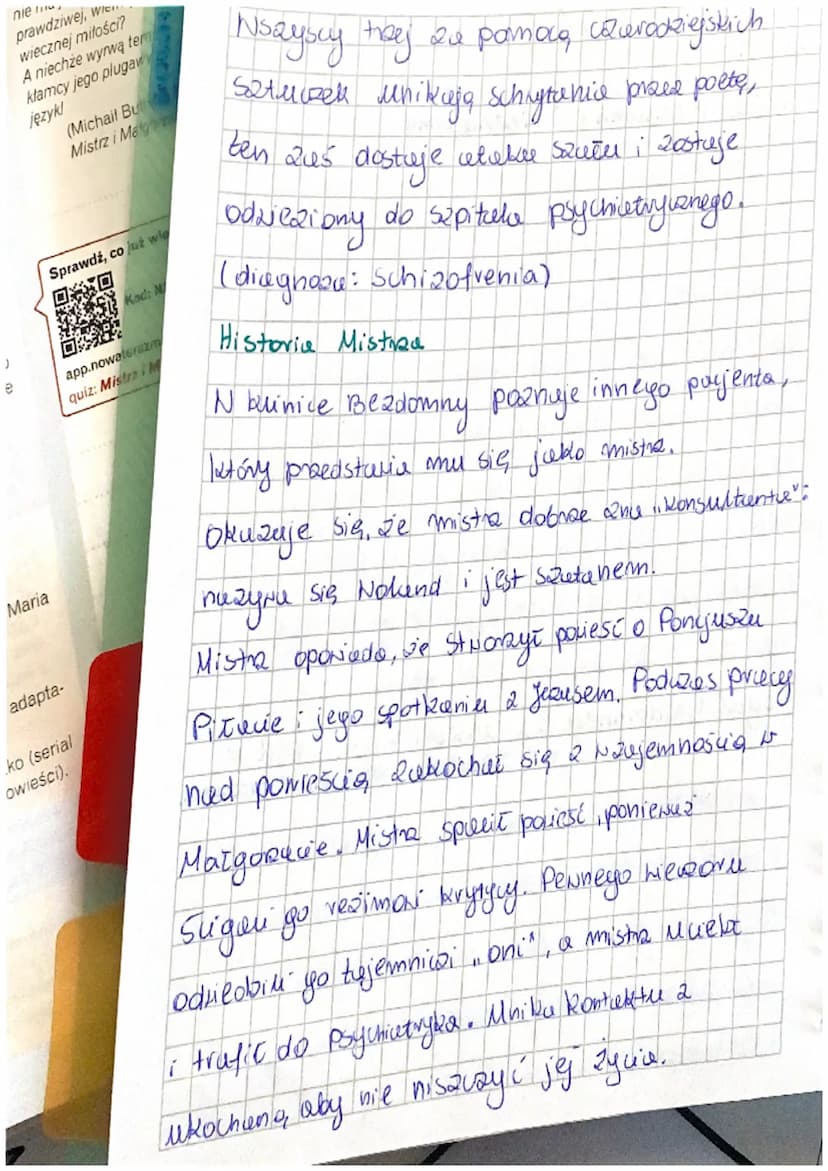 prawdziwej,
wiecznej miłości?
A niechże wyrwą
kłamcy jego
język!
(Michaił
Mistrz i
Sprawdź, co już
Kod:
quiz: Mistrz i
Maria
adapta-
(serial
owieści).
Wszyscy trzej za pomocą czarodziejskich
sztuczek unikają schwytania przez poetę,
ten zaś dostaje ataku szału i zostaje
odwieziony do szpitala psychiatrycznego.
(diagnoza: schizofrenia)
Historia Mistrza
W klinice Bezdomny poznaje innego pacjenta,
który przedstawia mu się jako mistrz.
Okazuje się, że mistrz dobrze zna "konsultanta":
nazywa się Woland i jest szatanem.
Mistrz opowiada, że stworzył powieść o Poncjuszu
Piłacie i jego spotkaniu z Jezusem. Podczas pracy
nad powieścią zakochał się z wzajemnością w
Małgorzacie. Mistrz spalił powieść, ponieważ
ścigali go reżimowi krytycy. Pewnego wieczoru
odwiedzili go tajemniczi "oni", a mistrz uciekł
i trafił do psychiatryka. Unika kontaktu z
ukochaną, aby nie niszczyć jej życia.